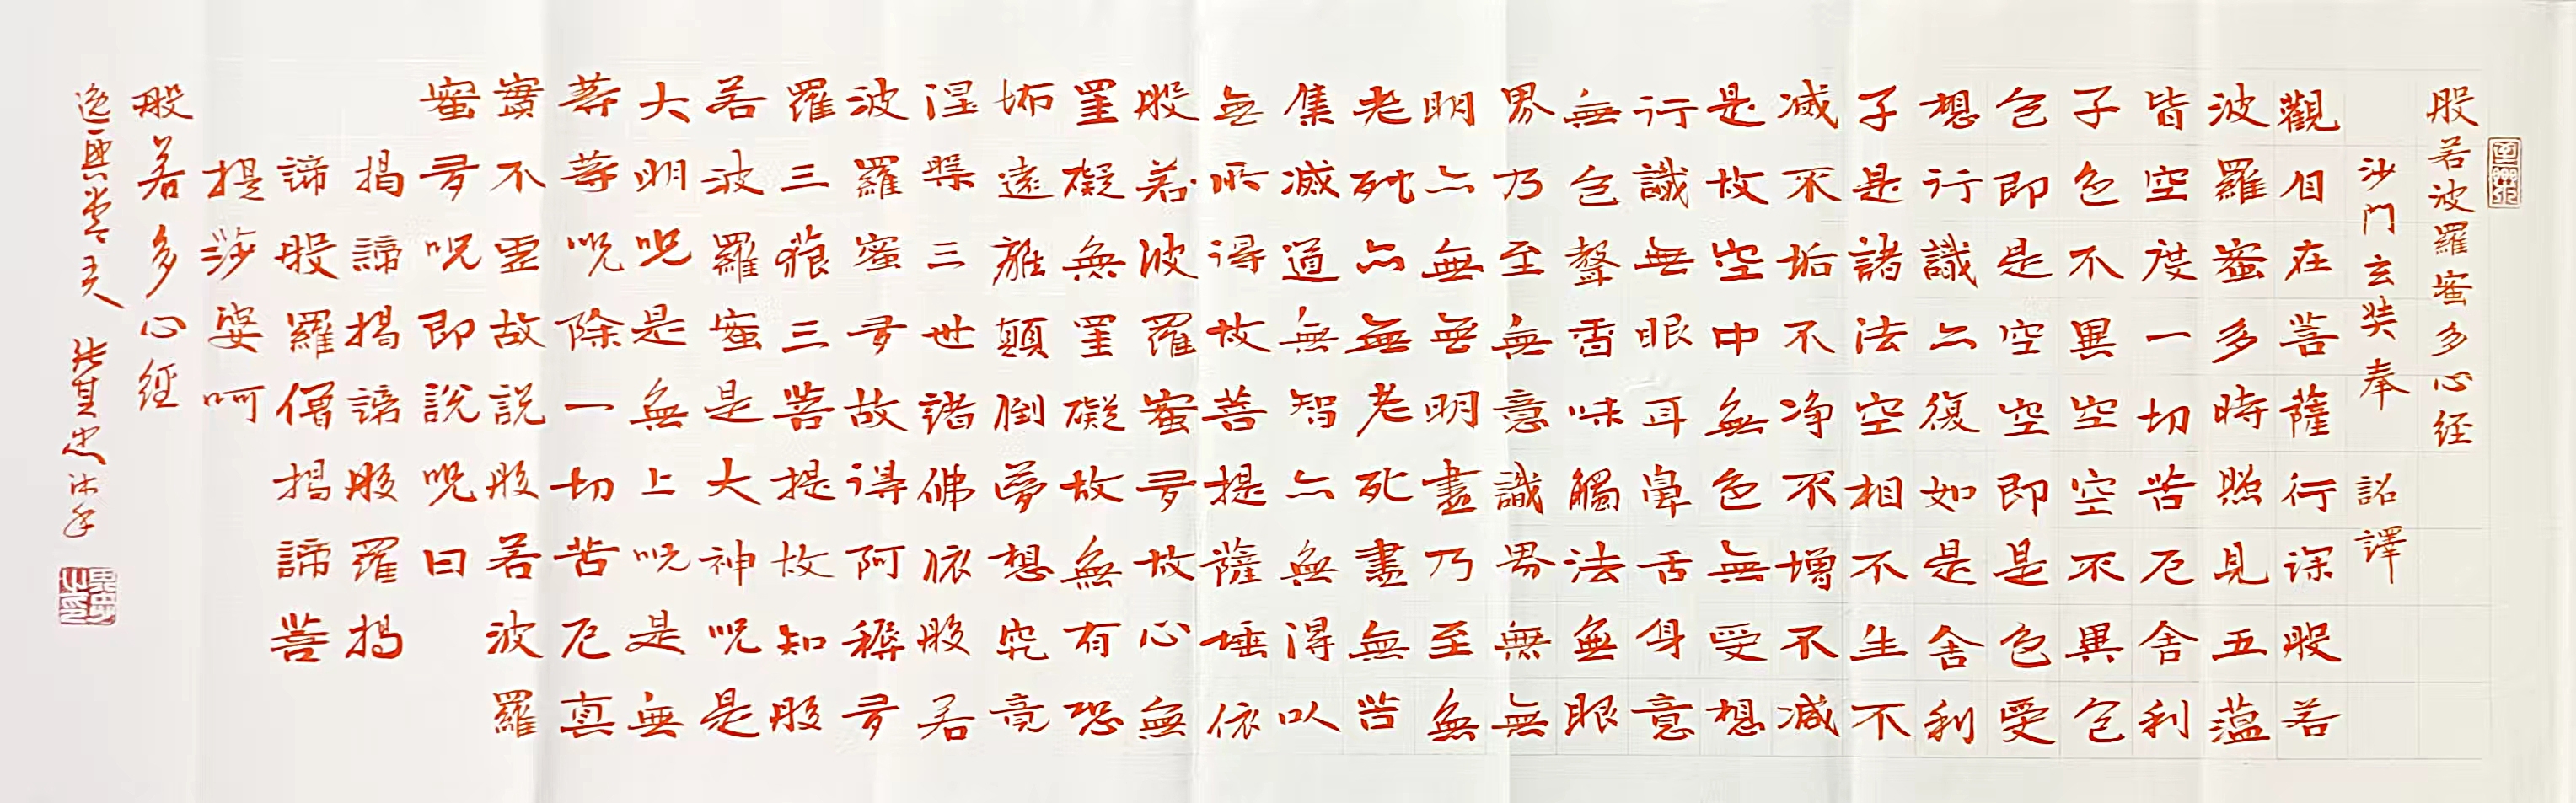 般若波羅蜜多心経
沙門玄奘奉 詔譯
觀自在菩薩行深般若
波羅蜜多時照見五蘊
皆空度一切苦厄舍利
子色不異空空不異色
色即是空空即是色受
想行識亦復如是舍利
子是諸法空相不生不
滅不垢不净不增不減
是故空中無色無受想
行識無眼耳鼻舌身意
無色聲香味觸法無眼
界乃至無意識界無無
明亦無無明盡乃至無
老死亦無老死盡無苦
集滅道無智亦無得以
無所得故菩提薩埵依
般若波羅蜜多故心無
罣礙無罣礙故無有恐
怖遠離顛倒夢想究竟
涅槃三世諸佛依般若
波羅蜜多故得阿耨多
羅三藐三菩提故知般
若波羅蜜是大神呪是
大明呪是無上呪是無
等等呪除一切苦厄真
實不虛故說般若波羅
蜜多呪即說呪曰
揭諦揭諦般羅揭
諦般羅僧揭諦菩
提莎婆呵
般若多心経
逸興堂主 張其忠沐手